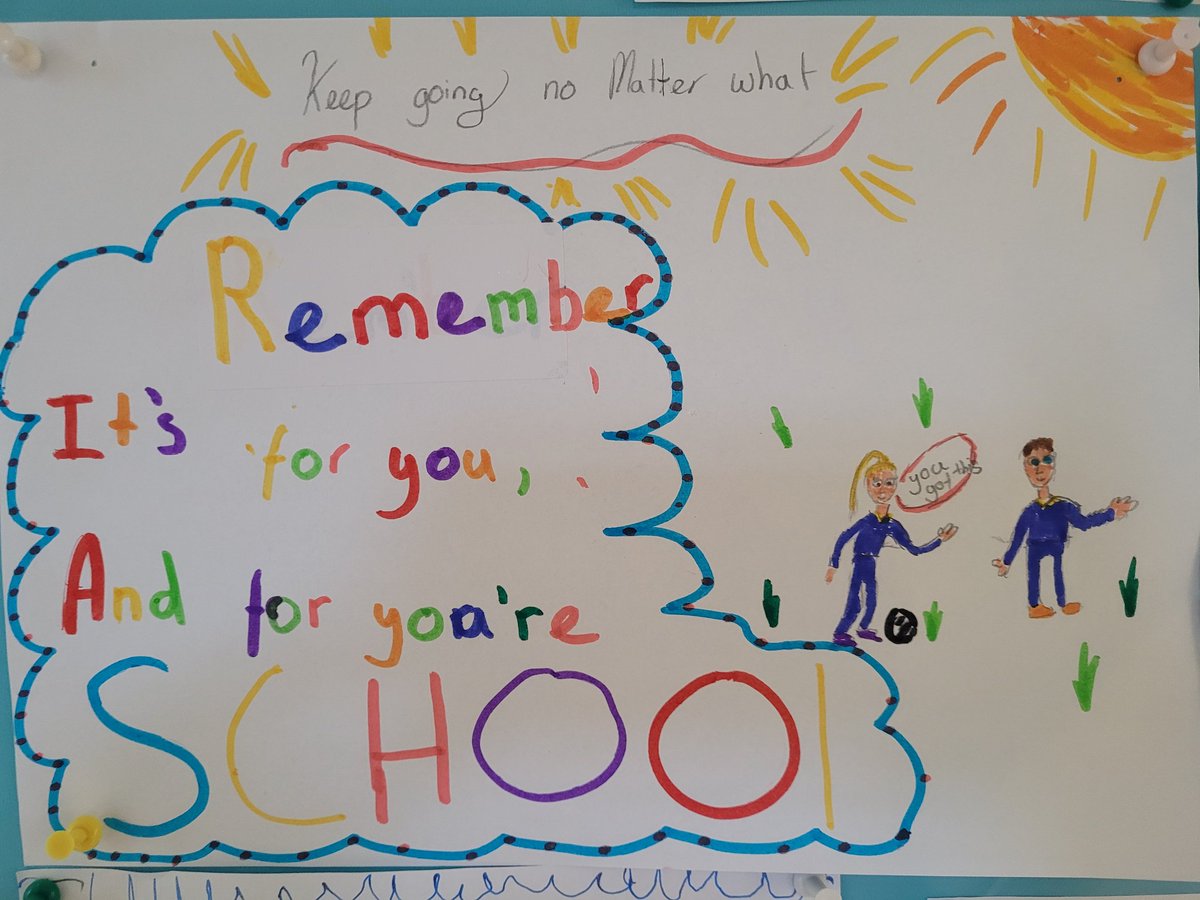 Keep going no Matter what
Remember
It's for you,
And for you're
SCHOOL
you
got this